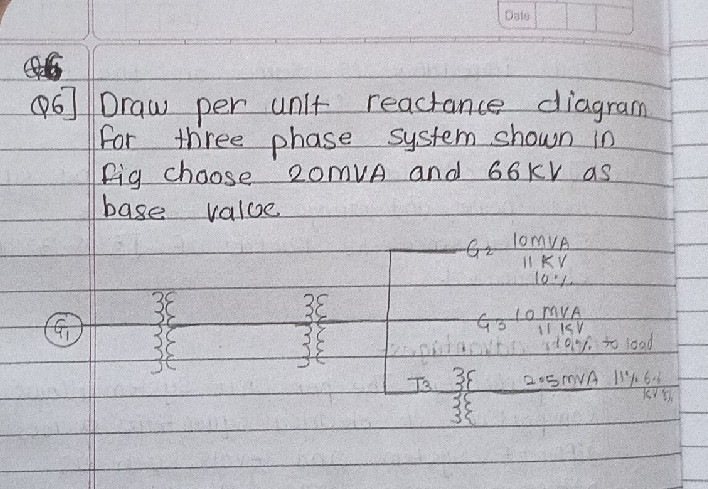 Date
Q6
Q6] Draw per unit reactance diagram
for three phase system shown in
fig choose 20MVA and 66KV as
base value
G2 10MVA
11 KV
10%
G1
G3 10 MVA
11 KV
to load
T3 2.5MVA 11%